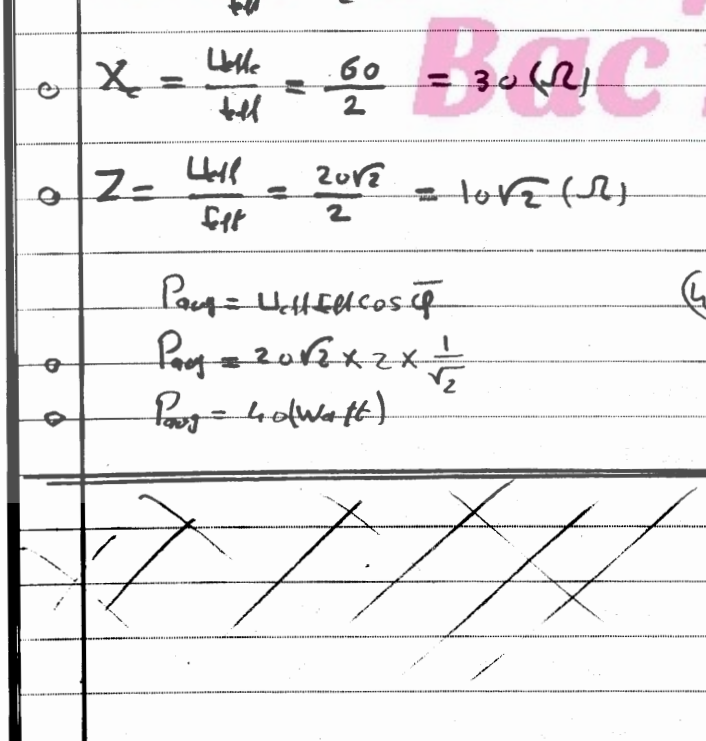 Bac
X_c = Ueffc / Ieff = 60 / 2 = 30 (Ω)
Z = Ueff / Ieff = 20√2 / 2 = 10√2 (Ω)
Pavg = Ueff Ieff cos φ̅
Pavg = 20√2 × 2 × 1/√2
Pavg = 40 (Watt)